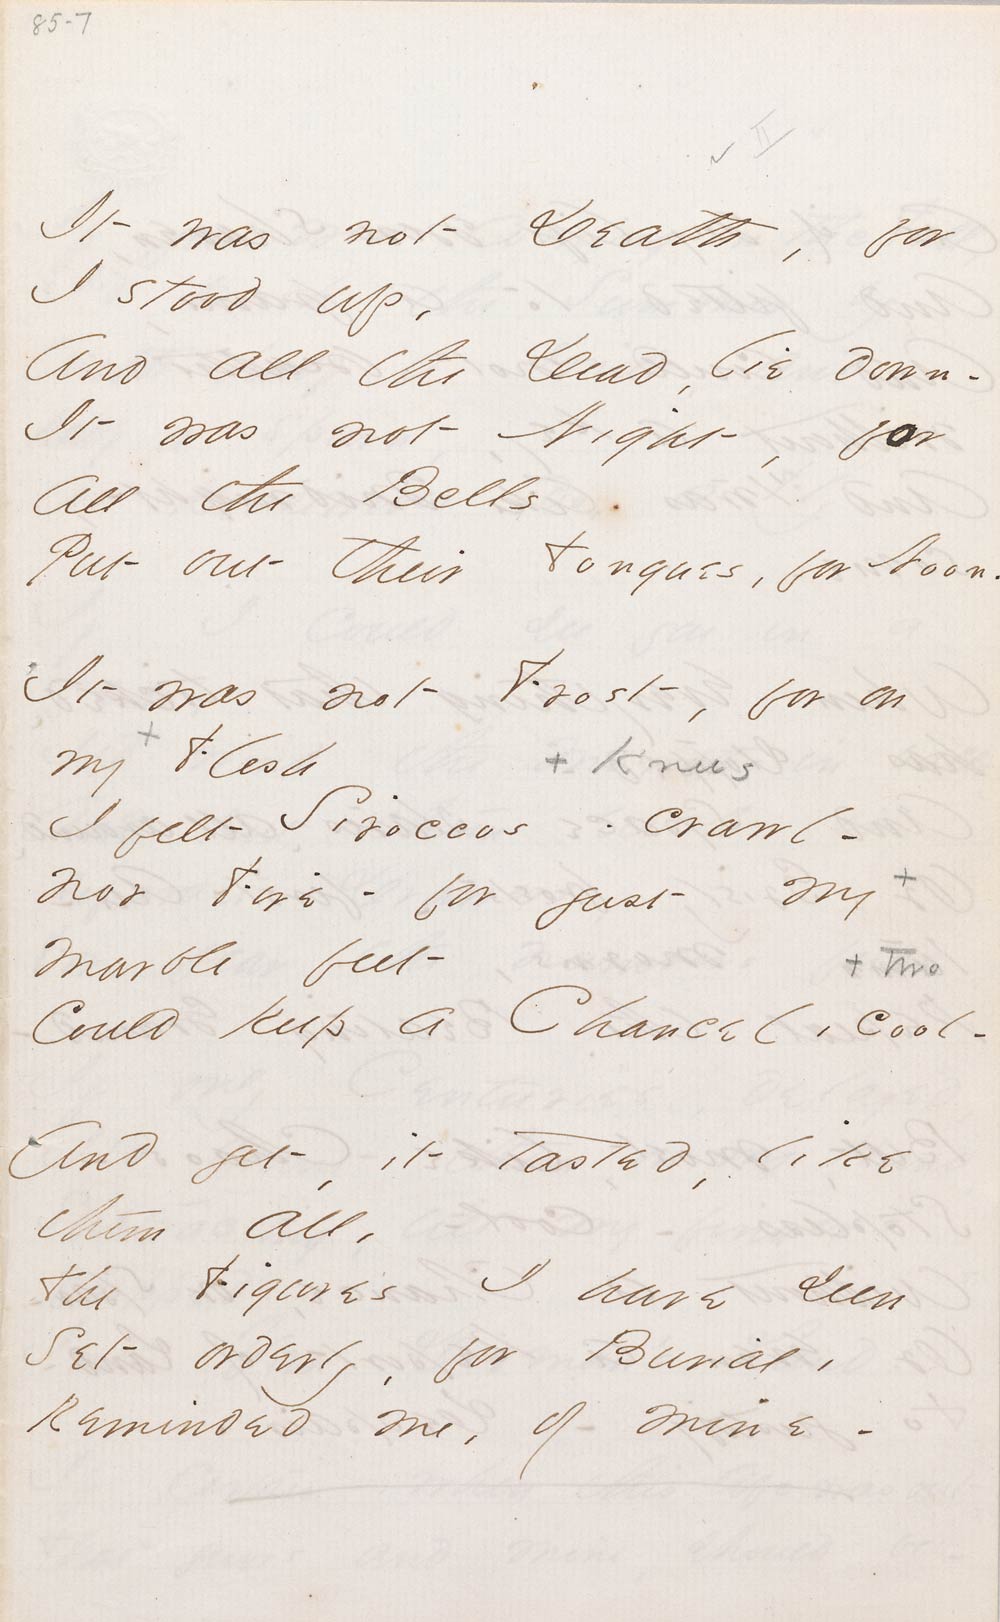 85-7
✓ II
It was not Death, for
I stood up,
And all the Dead, lie down -
It was not Night, for
all the Bells
Put out their Tongues, for Noon.
It was not Frost, for on
my + Flesh + Knees
I felt Siroccos - crawl -
nor Fire - for just my +
marble feet + Two
Could keep a Chancel, cool -
And yet, it tasted, like
them all,
The Figures I have seen
Set orderly, for Burial,
Reminded me, of mine -